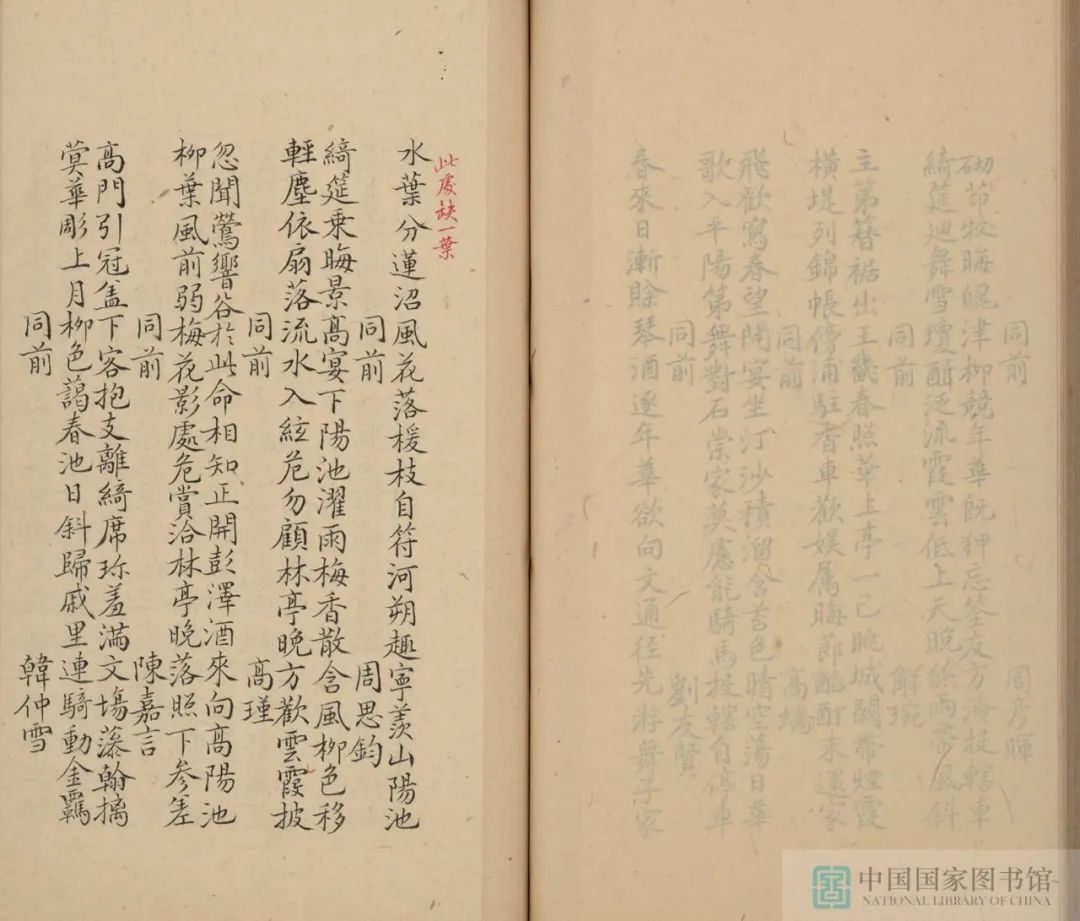 同前 周彦暉
砌茆牧晦魄津柳競年華既狎忘筌友方淹投轄車
綺筵廻舞雪瓊醑泛流霞雲低上天晚絲雨帶風斜
同前 解琬
主第簪裾出王畿春照華上亭一已眺城闕帶煙霞
横堤列錦帳傍浦駐香車歡娯属晦節酩酊未還家
同前 高嶠
飛歡寫春望開宴坐汀沙積溜含苔色晴空蕩日華
歌入平陽第舞對石崇家莫慮能騎馬投轄自停車
同前 劉友賢
春來日漸賖琴酒逐年華欲向文通径先游舞子家
此處缺一葉
水葉分蓮沼風花落楥枝自符河朔趣寧羨山陽池
同前 周思鈞
綺筵乗晦景高宴下陽池濯雨梅香散含風柳色移
輕塵依扇落流水入絃危勿顧林亭晚方歡雲霞披
同前 高瑾
忽聞鶯響谷於此命相知正開彭澤酒來向高陽池
柳葉風前弱梅花影處危賞洽林亭晚落照下参差
同前 陳嘉言
高門引冠盖下客抱支離綺席珎羞滿文塲藻翰摛
蓂華彫上月柳色藹春池日斜歸戚里連騎動金羈
同前 韓仲雪
中国国家图书馆
NATIONAL LIBRARY OF CHINA